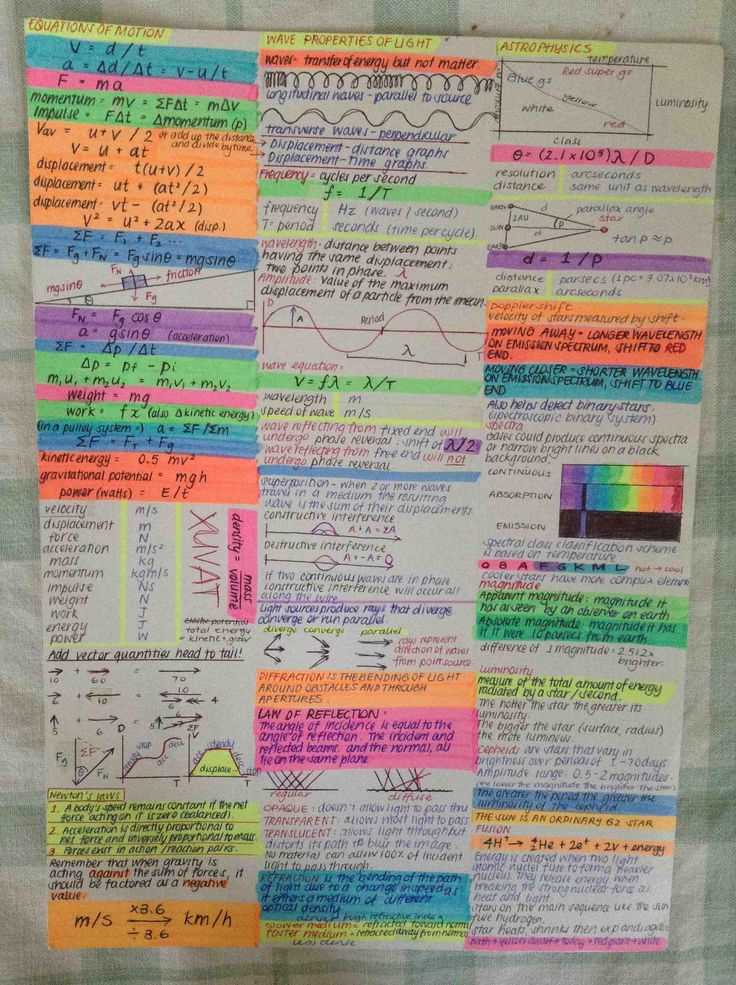 EQUATIONS OF MOTION
V = d/t
a = Δd/Δt = v-u/t
F = ma
momentum = mv = ΣFΔt = mΔv
Impulse = FΔt = Δmomentum (p)
Vav = u+v / 2 or add up the distance
and divide by time
V = u + at
displacement = t(u+v)/2
displacement = ut + (at²/2)
displacement = vt - (at²/2)
V² = u² + 2ax (disp.)
ΣF = F₁ + F₂ ...
ΣF = Fg + FN = Fg sinθ = mg sinθ
mg sinθ FN friction
θ Fg
FN = Fg cosθ
a = g sinθ (acceleration)
ΣF = Δp/Δt
Δp = pf - pi
m₁u₁ + m₂u₂ = m₁v₁ + m₂v₂
weight = mg
work = fx (also Δ kinetic energy)
(in a pulley system) a = ΣF/Σm
ΣF = FT + Fg
kinetic energy = 0.5 mv²
gravitational potential = mgh
power (watts) = E/t
velocity m/s
displacement m
force N
acceleration m/s²
mass kg
momentum kgm/s
impulse Ns
weight N
work J
energy J
power W
XUVAT
density = mass
volume
total energy
= kinetic + grav
Add vector quantities head to tail!
10 + 60 = 70
10
6 4
5 + 6 = 5
6
Fg ΣF FN
D T
V T
steady
acc
displace
Newton's laws
1. A body's speed remains constant if the net
force acting on it is zero (balanced).
2. Acceleration is directly proportional to
net force and inversely proportional to mass.
3. Forces exist in action/reaction pairs.
Remember that when gravity is
acting against the sum of forces, it
should be factored as a negative
value.
m/s ×3.6 km/h
÷3.6
WAVE PROPERTIES OF LIGHT
waves - transfer of energy but not matter
longitudinal waves - parallel to source
transverse waves - perpendicular
Displacement - distance graphs
Displacement - time graphs
Frequency = cycles per second
f = 1/T
frequency Hz (waves / second)
T = period seconds (time per cycle)
wavelength = distance between points
having the same displacement:
two points in phase. λ
Amplitude: value of the maximum
displacement of a particle from the mean
D A Period
λ T
wave equation:
V = fλ = λ/T
wavelength m
speed of wave m/s
wave reflecting from fixed end will
undergo phase reversal: shift of λ/2
wave reflecting from free end will not
undergo phase reversal
Superposition - when 2 or more waves
travel in a medium the resulting
wave is the sum of their displacements.
constructive interference
A + A = 2A
Destructive interference
A + -A = 0
If two continuous waves are in phase
constructive interference will occur all
along the wire
Light sources produce rays that diverge
converge or run parallel
diverge converge parallel
rays represent
direction of waves
from point source
DIFFRACTION IS THE BENDING OF LIGHT
AROUND OBSTACLES AND THROUGH
APERTURES.
LAW OF REFLECTION:
The angle of incidence is equal to the
angle of reflection. The incident and
reflected beams, and the normal, all
lie on the same plane
regular diffuse
OPAQUE: doesn't allow light to pass thru
TRANSPARENT: allows most light to pass
TRANSLUCENT: allows light through but
distorts its path to blur the image.
No material can allow 100% of incident
light to pass through.
REFRACTION is the bending of the path
of light due to a change in speed as
it enters a medium of different
optical density
high refractive index
slower medium = refract toward normal
faster medium = refract away from normal
less dense
ASTROPHYSICS
temperature
Blue gs Red super gs
yellow
white
red
Luminosity
class
θ = (2.1×10⁵)λ / D
resolution arcseconds
distance same unit as wavelength
EARTH d parallax angle
2AU star
SUN (P
EARTH d
tan p ≈ p
d = 1/P
distance parsecs
parallax arcseconds
Doppler shift
velocity of stars measured by shift.
MOVING AWAY = LONGER WAVELENGTH
ON EMISSION SPECTRUM, SHIFT TO RED
END.
MOVING CLOSER = SHORTER WAVELENGTH
ON EMISSION SPECTRUM, SHIFT TO BLUE
END
Also helps detect binary stars.
(spectroscopic binary system)
spectra
gases could produce continuous spectra
or narrow bright lines on a black
background.
CONTINUOUS
ABSORPTION
EMISSION
spectral class classification scheme
is based on temperature
O B A F G K M L hot → cool
cooler stars have more complex elements
magnitude
Apparent magnitude: magnitude it
has seen by an observer on earth
Absolute magnitude: magnitude it has
if it were 10 parsecs from earth
difference of 1 magnitude = 2.512x
brighter.
Luminosity
measure of the total amount of energy
radiated by a star/second.
The hotter the star the greater its
luminosity.
The bigger the star (surface, radius)
the more luminous.
Cepheids are stars that vary in
brightness over periods of 1-70 days
Amplitude range: 0.5-2 magnitudes.
the lower the magnitude the brighter the star
The greater the period the greater the
luminosity of the cepheid
THE SUN IS AN ORDINARY G2 STAR
FUSION
4H⁺ → ⁴₂He + 2e⁺ + 2V + energy
Energy is created when two light
atomic nuclei fuse to form a heavier
nucleus. They release energy when
breaking the strong nuclear force as
heat and light.
Stars on the main sequence like the sun
fuse hydrogen.